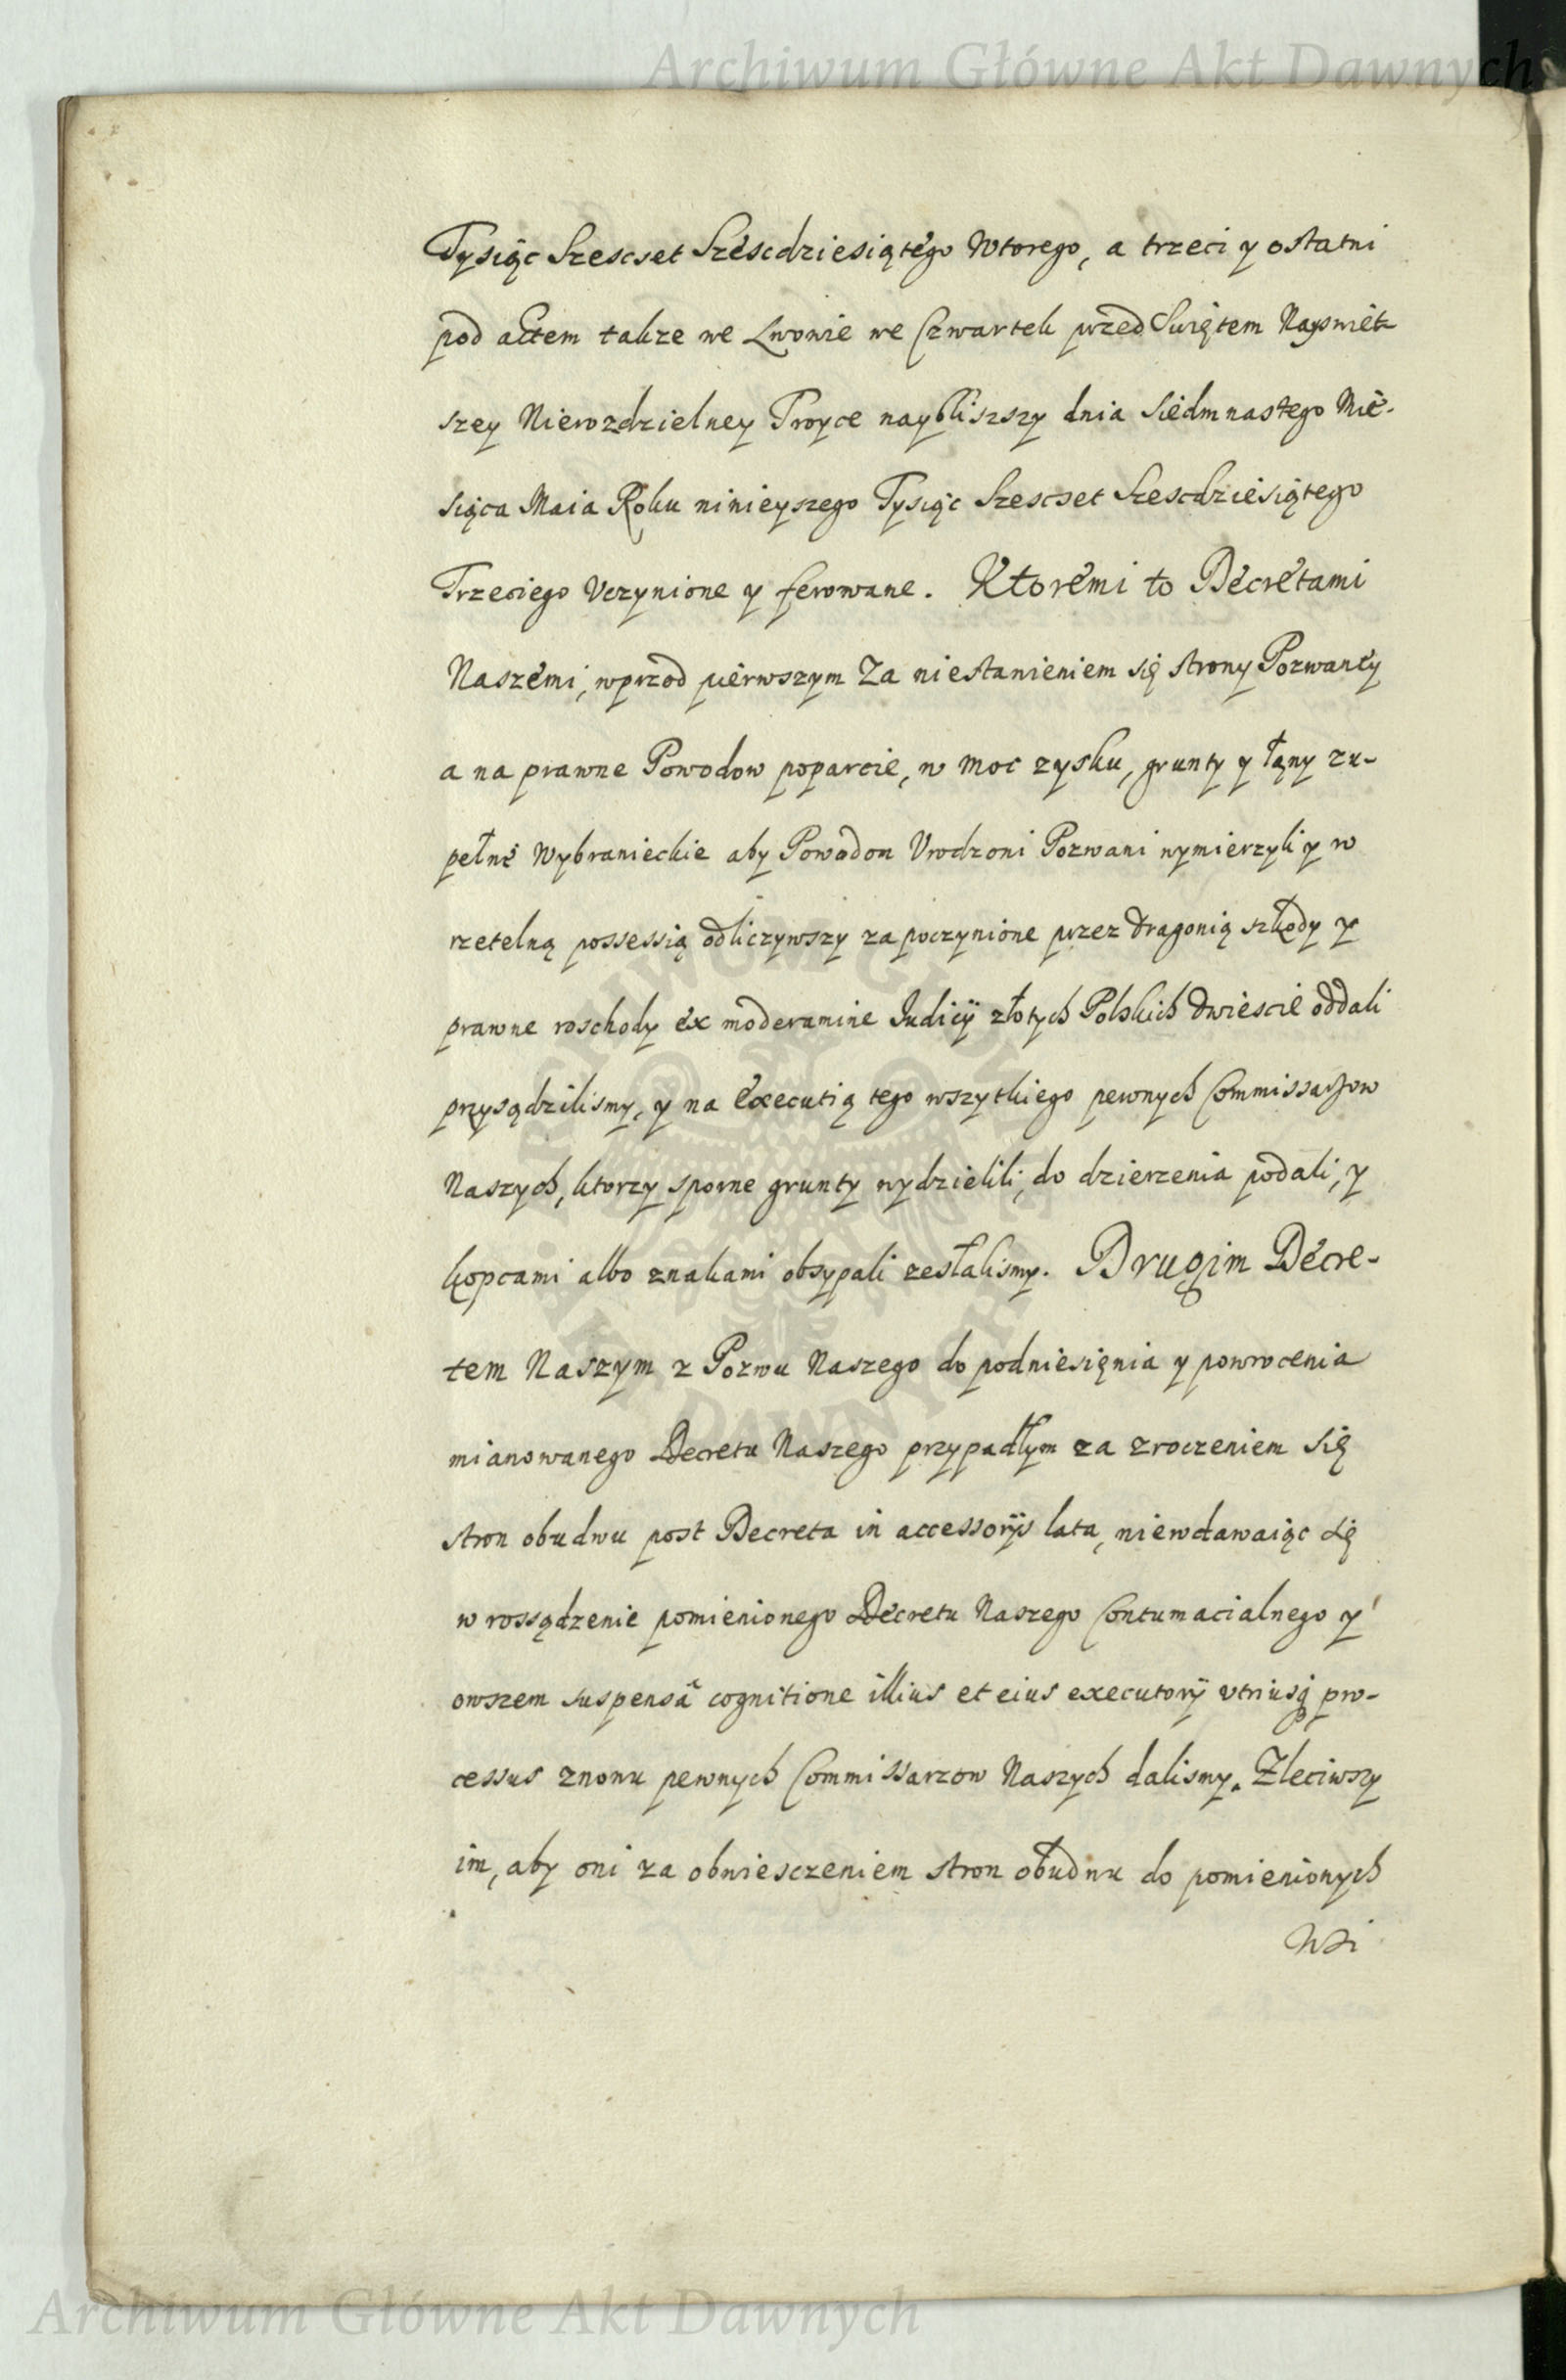 Archiwum Główne Akt Dawnych
Tysiąc Szescset Szescdziesiątego Wtorego, a trzeci y ostatni
pod actem takze we Lwowie we Czwartek przed Swiętem Nayswiet-
szey Nierozdzielney Troyce naybliszszy dnia Siedmnastego Mie-
siąca Maia Roku ninieyszego Tysiąc Szescset Szescdziesiątego
Trzeciego Vczynione y ferowane. Ktoremi to Decretami
Naszemi, wprzod pierwszym Za niestanieniem się strony Pozwaney
a na prawne Powodow poparcie, w moc zysku, grunty y łany zu-
pełne Wybranieckie aby Powodom Vrodzoni Pozwani wymierzyli y w
rzetelną possessią odliczywszy za poczynione przez dragonią szkody y
prawne roschody ex moderamine Iudicÿ złotych Polskich dwiescie oddali
przysądzilismy, y na executią tego wszytkiego pewnych Commissarzow
Naszych, ktorzy sporne grunty wydzielili, do dzierzenia podali, y
kopcami albo znakami obsypali zesłalismy. Drugim Decre-
tem Naszym z Pozwu Naszego do podniesięnia y powrocenia
mianowanego Decretu Naszego przypadłym za zroczeniem się
stron obudwu post Decreta in accessorÿs lata, niewdawaiąc się
w rossądzenie pomienionego Decretu Naszego Contumacialnego y
owszem suspensâ cognitione illius et eius executorÿ vtriusq pro-
cessus znowu pewnych Commissarzow Naszych dalismy. Zleciwszy
im, aby oni za obwiesczeniem stron obudwu do pomienionych
Wsi
Archiwum Główne Akt Dawnych